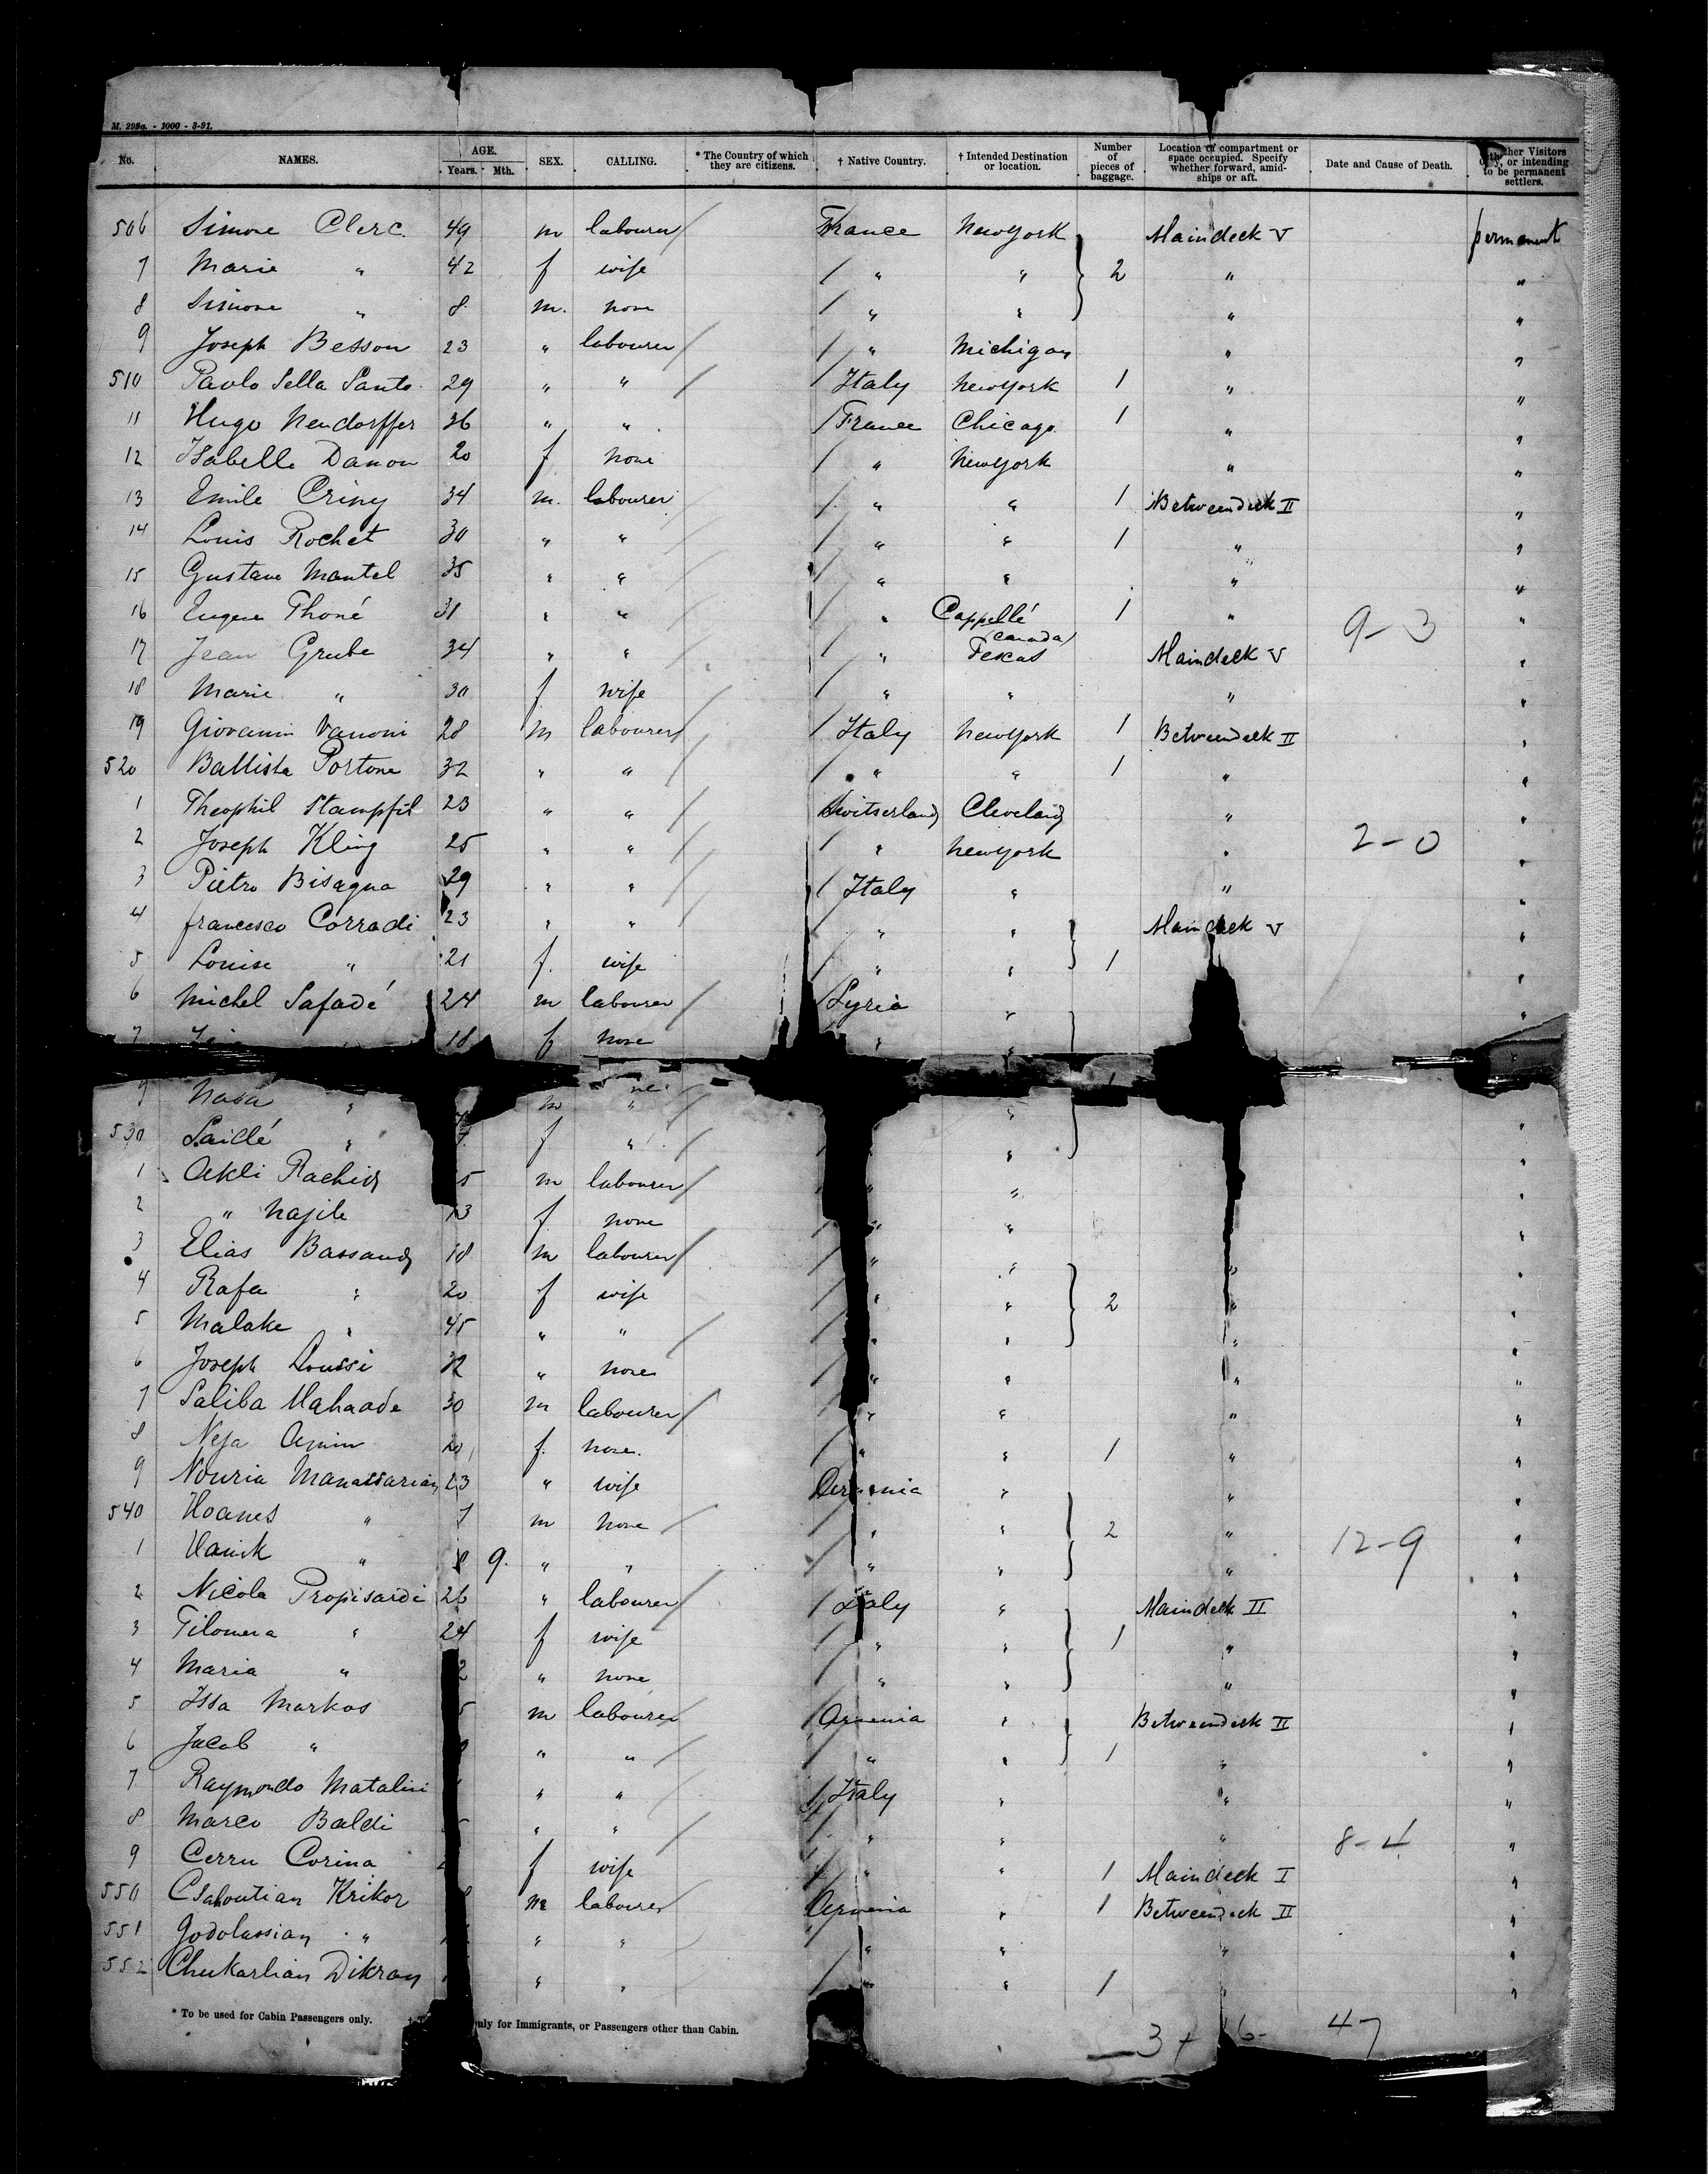 M. 298a. - 1000 - 3-91.
No. NAMES. AGE. Years. Mth. SEX. CALLING. * The Country of which they are citizens. † Native Country. † Intended Destination or location. Number of pieces of baggage. Location of compartment or space occupied. Specify whether forward, amidships or aft. Date and Cause of Death. or intending to be permanent settlers.
506 Simone Clerc. 49 m labourer France Newyork Maindeck V permanent
7 Marie " 42 f wife " " 2 " "
8 Simone " 8 m. none " " " "
9 Joseph Besson 23 " labourer " Michigan " "
510 Paolo Sella Santo 29 " " Italy Newyork 1 " "
11 Hugo Neudorffer 36 " " France Chicago 1 " "
12 Isabelle Danon 20 f none " Newyork " "
13 Emile Criny 34 m. labourer " " 1 Betweendeck II "
14 Louis Rochet 30 " " " " 1 " "
15 Gustave Mantel 35 " " " " " "
16 Eugene Thoné 31 " " " Cappellé Canada 1 " 9-3 "
17 Jean Grube 34 " " " Texas Maindeck V "
18 Marie " 30 f wife " " " "
19 Giovanni Vanoni 28 m labourer Italy Newyork 1 Betweendeck II "
520 Battista Portone 32 " " " " 1 " "
1 Theophil Stampfli 23 " " Switserland Cleveland " "
2 Joseph Kling 25 " " " Newyork " 2-0 "
3 Pietro Bisagna 29 " " Italy " " "
4 francesco Corradi 23 " " " " Maindeck V "
5 Louise " 21 f. wife " " 1 "
6 Michel Safadé 24 m labourer Syria " "
7 18 f none " "
9 " m "
530 Saidé " f " " "
1 Akli Rachid 5 m labourer " " "
2 " Najile 13 f none " " "
3 Elias Bassaud 18 m labourer " " " "
4 Rafa " 20 f wife " " 2 " "
5 Malake " 45 " " " " " "
6 Joseph Loussi 32 " none " " " "
7 Saliba Mahaade 30 m labourer " " " "
8 Neja Amin 20 f. none. " " 1 " "
9 Nouria Manassarian 23 " wife Armenia " " "
540 Hoanes " 7 m none " " 2 " "
1 Vanik " 9. " " " " " 12-9 "
2 Nicola Propisardi 26 " labourer Italy " Maindeck II "
3 Filomena " 24 f wife " " 1 " "
4 Maria " 2 " none " " " "
5 Issa Markos 5 m labourer Armenia " Betweendeck II "
6 Jacob " " " " " 1 " "
7 Raymondo Matalini " " Italy " " "
8 Marco Baldi " " " " " 8-4 "
9 Cerru Corina f wife " " 1 Maindeck I "
550 Krikor m labourer Armenia " 1 Betweendeck II "
551 Godolassian " " " " " " "
552 Chukarlian Dikran " " " " 1 " "
* To be used for Cabin Passengers only. only for Immigrants, or Passengers other than Cabin.
47